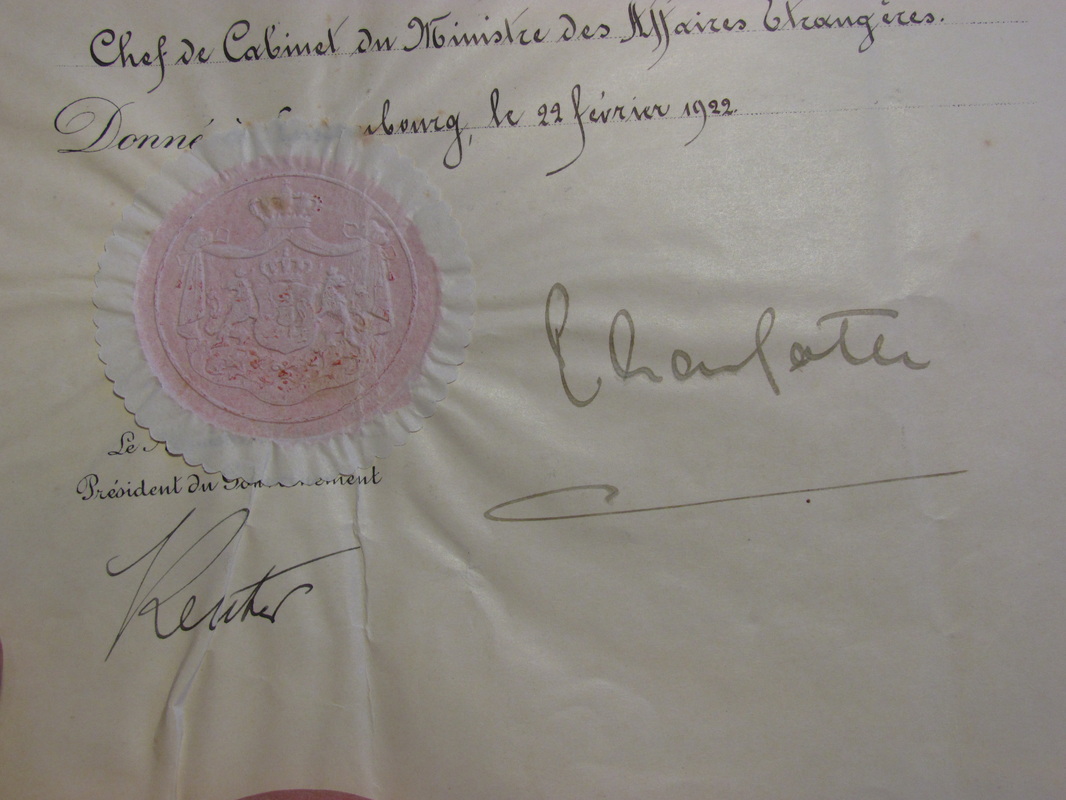 Chef de Cabinet du Ministre des Affaires Etrangères.
Donné à bourg, le 22 février 1922
Charlotte
Le
Président du Gouvernement
Reuter